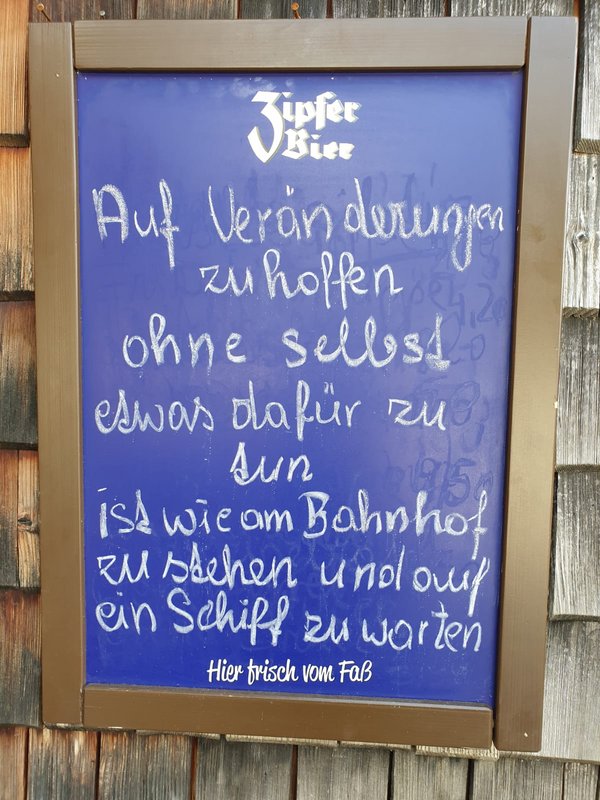 Zipfer
Bier
Auf Veränderungen
zu hoffen
ohne selbst
etwas dafür zu
tun
ist wie am Bahnhof
zu stehen und auf
ein Schiff zu warten
Hier frisch vom Faß